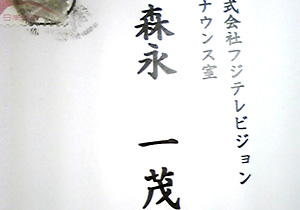 式会社フジテレビジョン
ナウンス室
森永 一茂